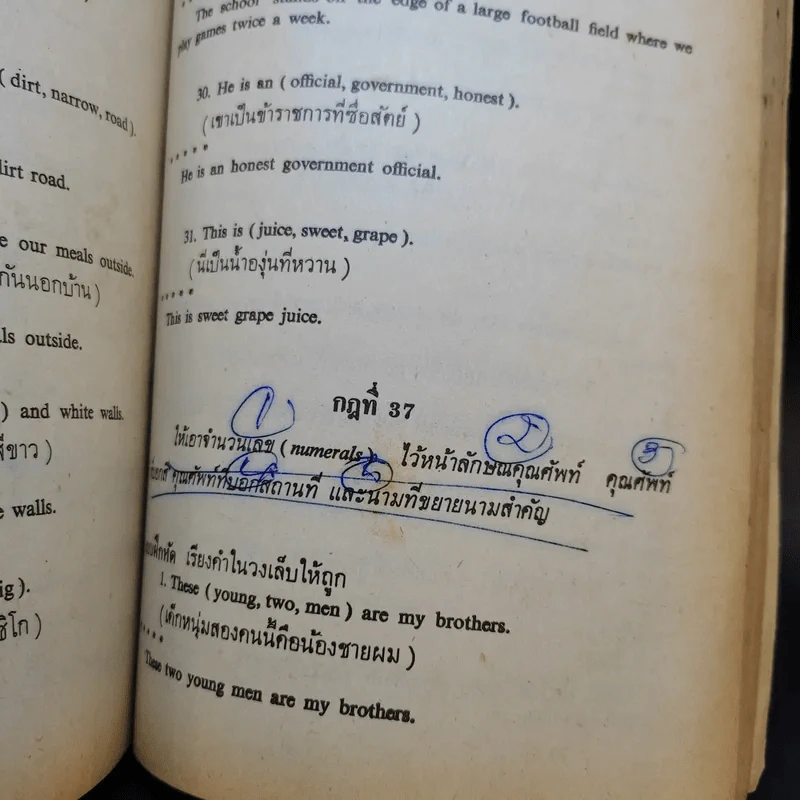 ( dirt, narrow, road ).
dirt road.
our meals outside.
กันนอกบ้าน )
outside.
) and white walls.
walls.
The school stands on the edge of a large football field where we
play games twice a week.
30. He is an ( official, government, honest ).
( เขาเป็นข้าราชการที่ซื่อสัตย์ )
.....
He is an honest government official.
31. This is ( juice, sweet, grape ).
( นี่เป็นน้ำองุ่นที่หวาน )
.....
This is sweet grape juice.
กฎที่ 37
1 2 3
ให้เอาจำนวนเลข ( numerals ) ไว้หน้าลักษณคุณศัพท์ คุณศัพท์
4 5
คุณศัพท์ที่บอกสถานที่ และนามที่ขยายนามสำคัญ
แบบฝึกหัด เรียงคำในวงเล็บให้ถูก
1. These ( young, two, men ) are my brothers.
( เด็กหนุ่มสองคนนี้คือน้องชายผม )
.....
These two young men are my brothers.